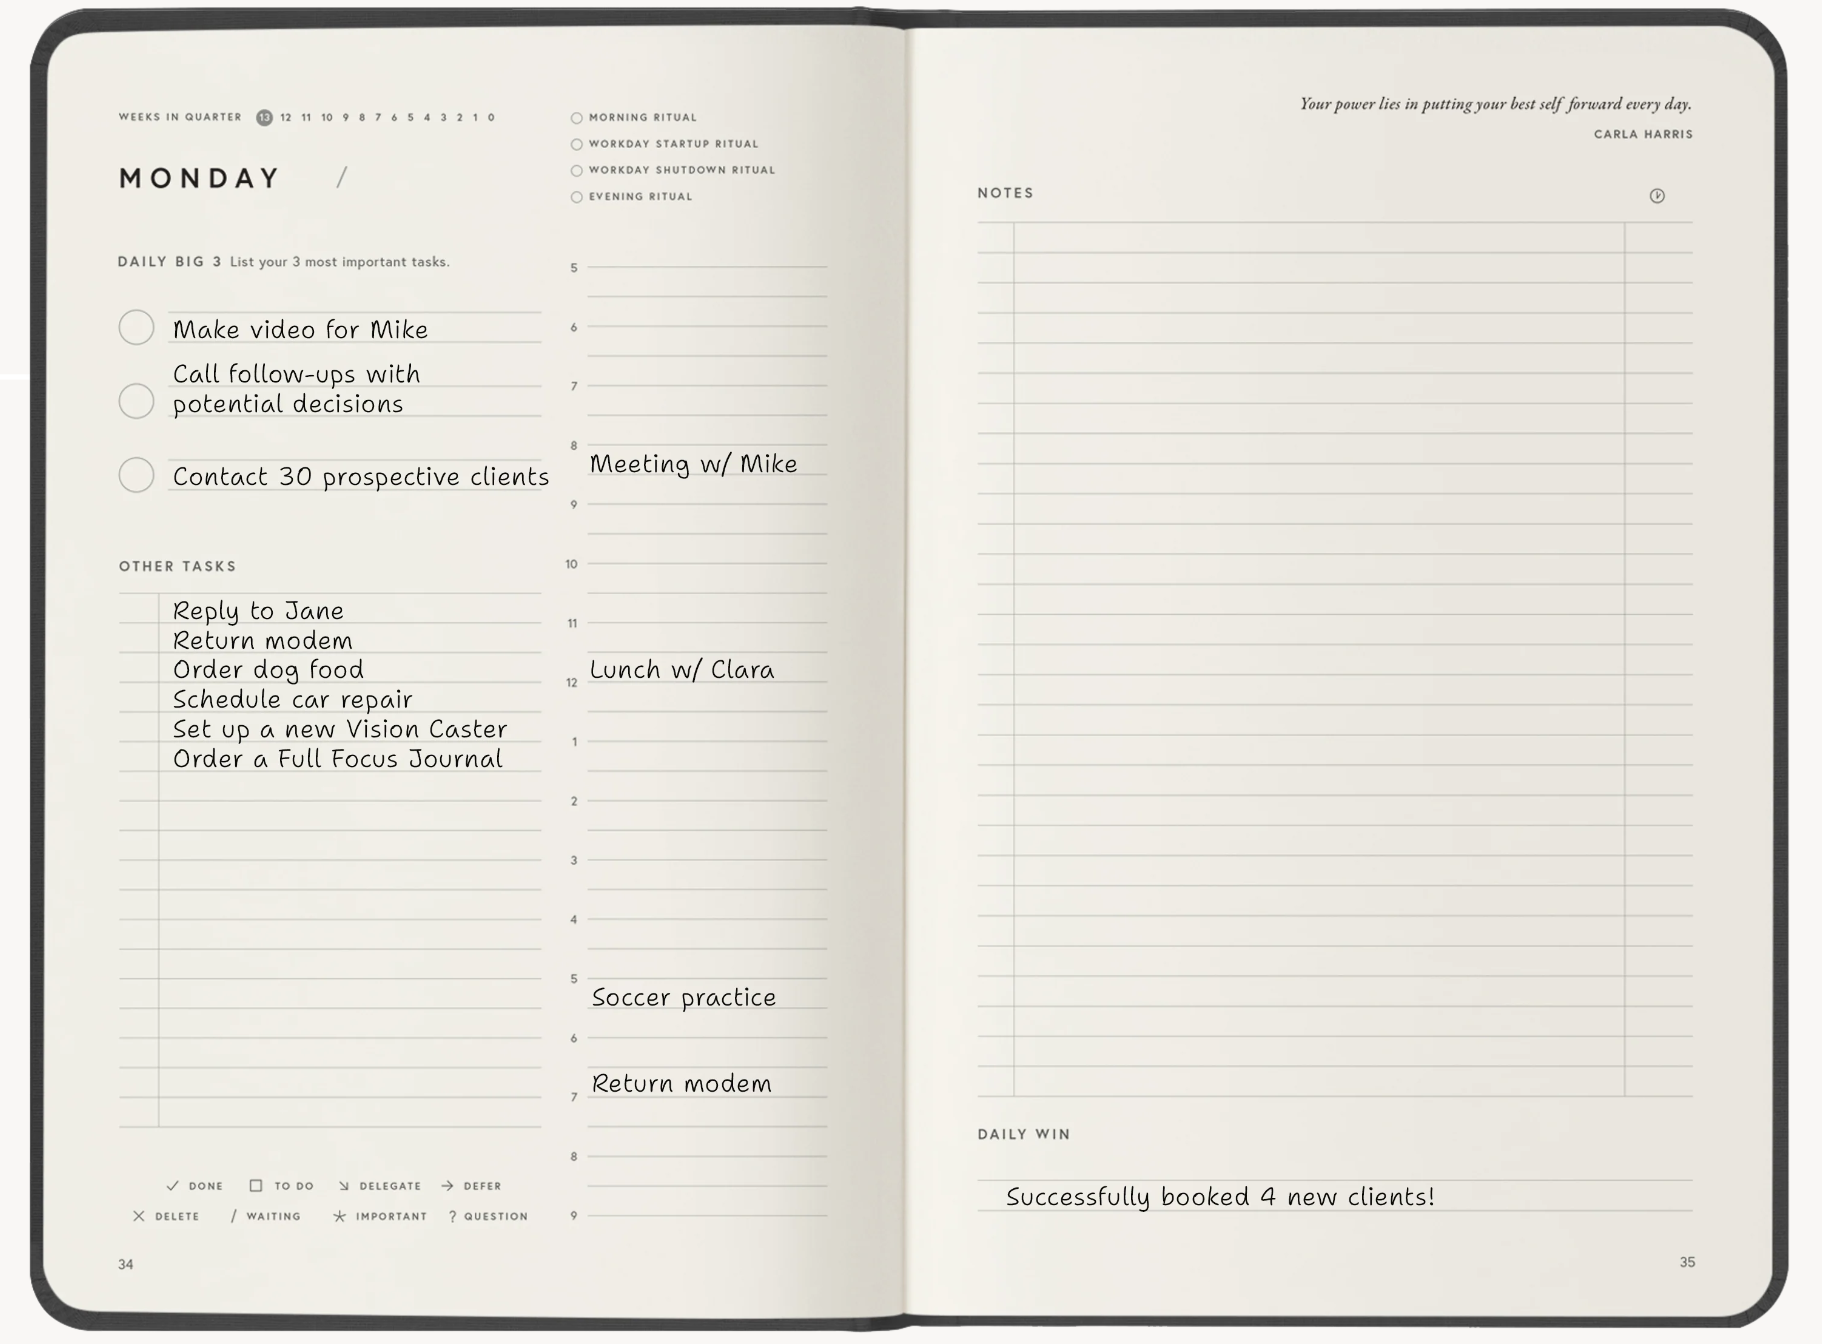 WEEKS IN QUARTER 13 12 11 10 9 8 7 6 5 4 3 2 1 0
MONDAY /
MORNING RITUAL
WORKDAY STARTUP RITUAL
WORKDAY SHUTDOWN RITUAL
EVENING RITUAL
DAILY BIG 3 List your 3 most important tasks.
Make video for Mike
Call follow-ups with
potential decisions
Contact 30 prospective clients
OTHER TASKS
Reply to Jane
Return modem
Order dog food
Schedule car repair
Set up a new Vision Caster
Order a Full Focus Journal
✓ DONE □ TO DO ↘ DELEGATE → DEFER
✕ DELETE / WAITING ☆ IMPORTANT ? QUESTION
34
5
6
7
8
Meeting w/ Mike
9
10
11
Lunch w/ Clara
12
1
2
3
4
5
Soccer practice
6
Return modem
7
8
9
Your power lies in putting your best self forward every day.
CARLA HARRIS
NOTES
DAILY WIN
Successfully booked 4 new clients!
35